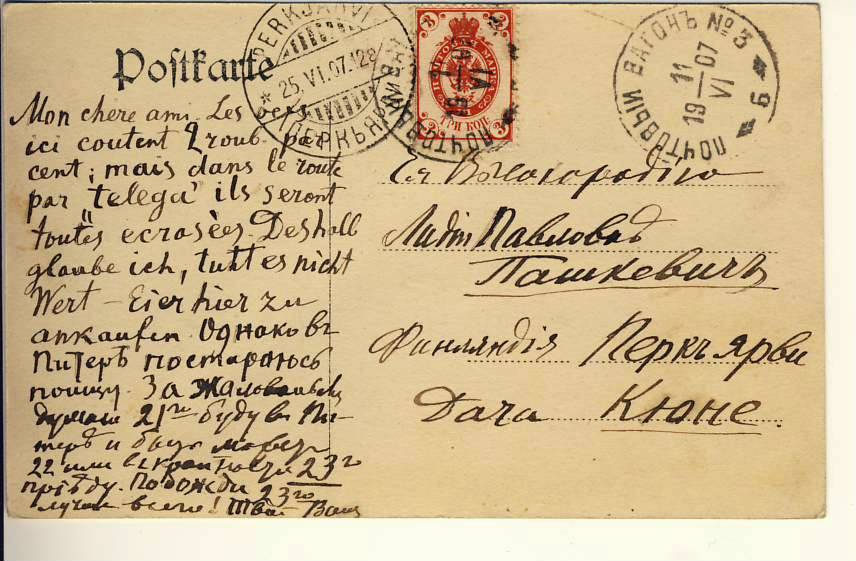 Postkarte
PERKJÄRVI
25.VI.07.
ПЕРКЪЯРВИ
ПОЧТОВЫЙ ВАГОНЪ
ТРИ КОП.
3 3
ПОЧТОВЫЙ ВАГОНЪ № 3
11 VI
19 07
6
Mon chere ami. Les oeufs
ici coutent 2 roub. par
cent; mais dans le route
par "telega" ils seront
toutes ecrasées. Deshalb
glaube ich, tuht es nicht
Wert – Eier hier zu
ankaufen. Однако въ
Питерѣ постараюсь
поищу. За жалованьемъ
думаю 21го буду въ Пи-
терѣ и быть можетъ
22 или въ крайности 23го
пріѣду. Подожди 23го
лучше всего! Твой Ваня
Ея Высокородію
Лидіи Павловнѣ
Пашкевичъ
Финляндія Перкъярви
Дача Кюне.